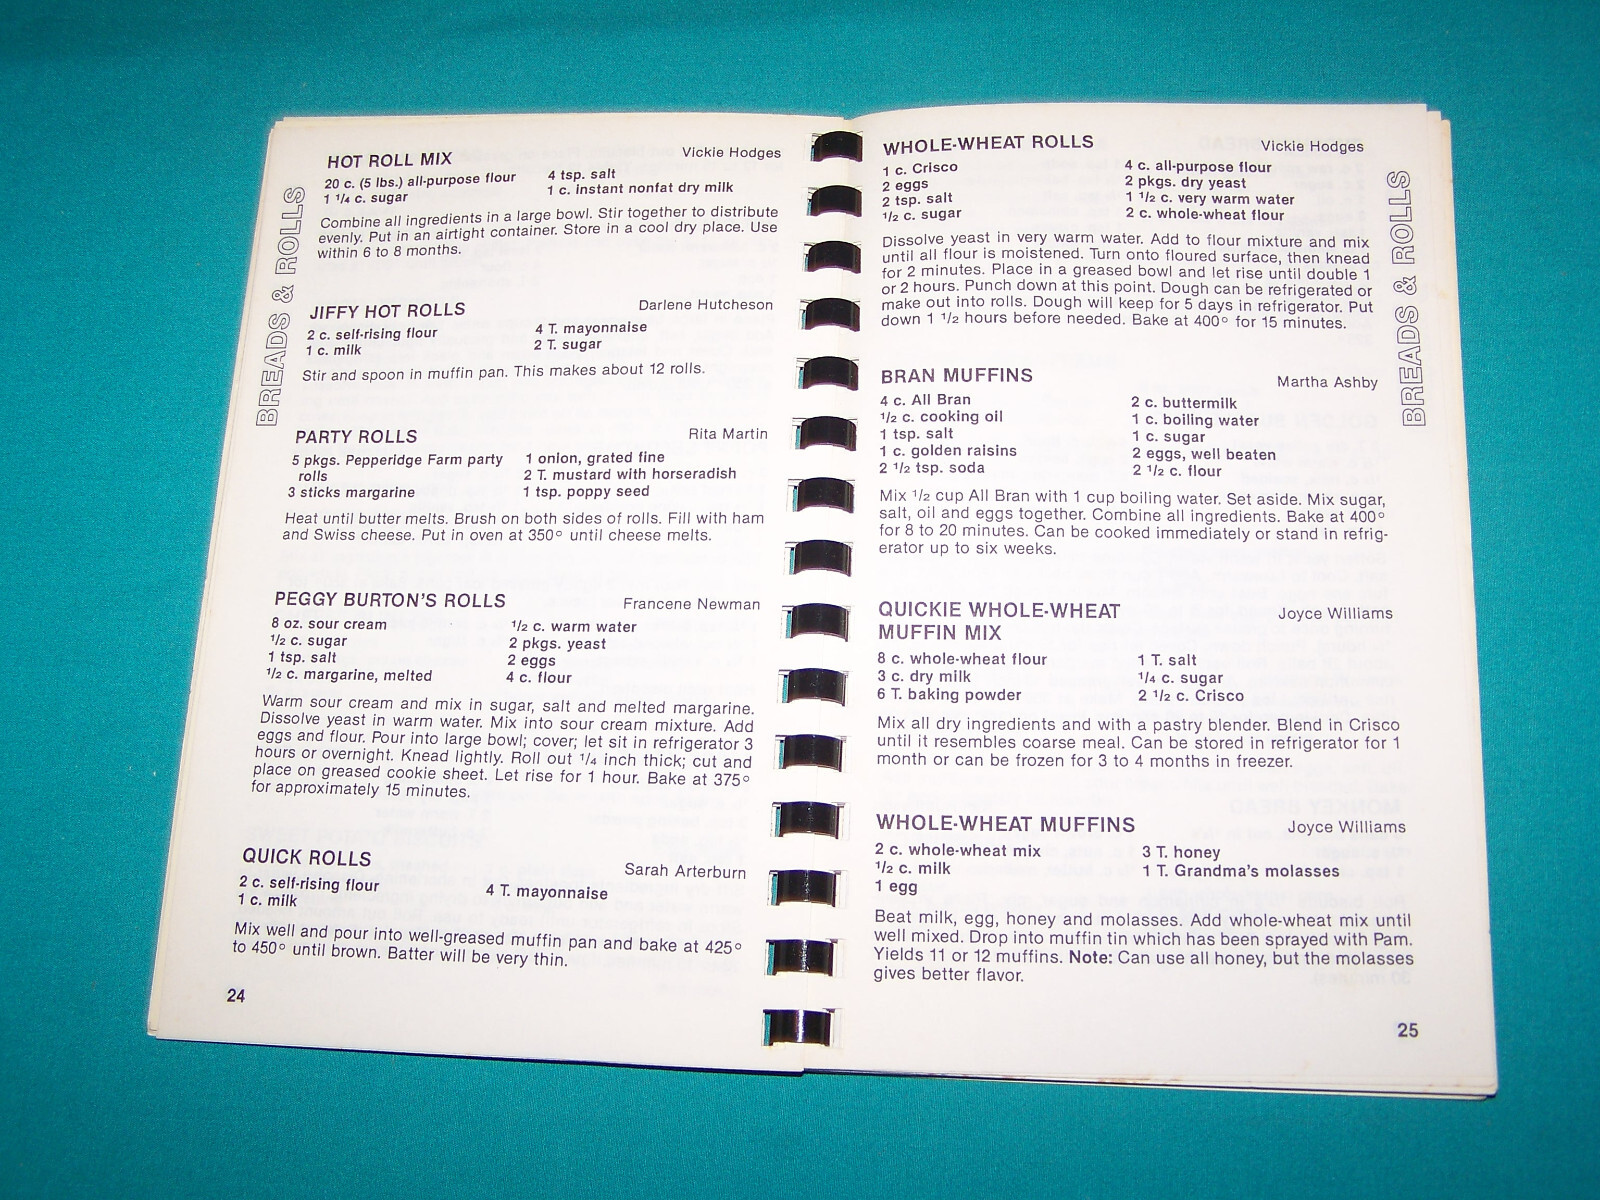 BREADS & ROLLS
HOT ROLL MIX
Vickie Hodges
20 c. (5 lbs.) all-purpose flour
1 1/4 c. sugar
4 tsp. salt
1 c. instant nonfat dry milk
Combine all ingredients in a large bowl. Stir together to distribute
evenly. Put in an airtight container. Store in a cool dry place. Use
within 6 to 8 months.
JIFFY HOT ROLLS
Darlene Hutcheson
2 c. self-rising flour
1 c. milk
4 T. mayonnaise
2 T. sugar
Stir and spoon in muffin pan. This makes about 12 rolls.
PARTY ROLLS
Rita Martin
5 pkgs. Pepperidge Farm party
rolls
3 sticks margarine
1 onion, grated fine
2 T. mustard with horseradish
1 tsp. poppy seed
Heat until butter melts. Brush on both sides of rolls. Fill with ham
and Swiss cheese. Put in oven at 350° until cheese melts.
PEGGY BURTON'S ROLLS
Francene Newman
8 oz. sour cream
1/2 c. sugar
1 tsp. salt
1/2 c. margarine, melted
1/2 c. warm water
2 pkgs. yeast
2 eggs
4 c. flour
Warm sour cream and mix in sugar, salt and melted margarine.
Dissolve yeast in warm water. Mix into sour cream mixture. Add
eggs and flour. Pour into large bowl; cover; let sit in refrigerator 3
hours or overnight. Knead lightly. Roll out 1/4 inch thick; cut and
place on greased cookie sheet. Let rise for 1 hour. Bake at 375°
for approximately 15 minutes.
QUICK ROLLS
Sarah Arterburn
2 c. self-rising flour
1 c. milk
4 T. mayonnaise
Mix well and pour into well-greased muffin pan and bake at 425°
to 450° until brown. Batter will be very thin.
24
WHOLE-WHEAT ROLLS
Vickie Hodges
1 c. Crisco
2 eggs
2 tsp. salt
1/2 c. sugar
4 c. all-purpose flour
2 pkgs. dry yeast
1 1/2 c. very warm water
2 c. whole-wheat flour
Dissolve yeast in very warm water. Add to flour mixture and mix
until all flour is moistened. Turn onto floured surface, then knead
for 2 minutes. Place in a greased bowl and let rise until double 1
or 2 hours. Punch down at this point. Dough can be refrigerated or
make out into rolls. Dough will keep for 5 days in refrigerator. Put
down 1 1/2 hours before needed. Bake at 400° for 15 minutes.
BREADS & ROLLS
BRAN MUFFINS
Martha Ashby
4 c. All Bran
1/2 c. cooking oil
1 tsp. salt
1 c. golden raisins
2 1/2 tsp. soda
2 c. buttermilk
1 c. boiling water
1 c. sugar
2 eggs, well beaten
2 1/2 c. flour
Mix 1/2 cup All Bran with 1 cup boiling water. Set aside. Mix sugar,
salt, oil and eggs together. Combine all ingredients. Bake at 400°
for 8 to 20 minutes. Can be cooked immediately or stand in refrig-
erator up to six weeks.
QUICKIE WHOLE-WHEAT
MUFFIN MIX
Joyce Williams
8 c. whole-wheat flour
3 c. dry milk
6 T. baking powder
1 T. salt
1/4 c. sugar
2 1/2 c. Crisco
Mix all dry ingredients and with a pastry blender. Blend in Crisco
until it resembles coarse meal. Can be stored in refrigerator for 1
month or can be frozen for 3 to 4 months in freezer.
WHOLE-WHEAT MUFFINS
Joyce Williams
2 c. whole-wheat mix
1/2 c. milk
1 egg
3 T. honey
1 T. Grandma's molasses
Beat milk, egg, honey and molasses. Add whole-wheat mix until
well mixed. Drop into muffin tin which has been sprayed with Pam.
Yields 11 or 12 muffins. Note: Can use all honey, but the molasses
gives better flavor.
25